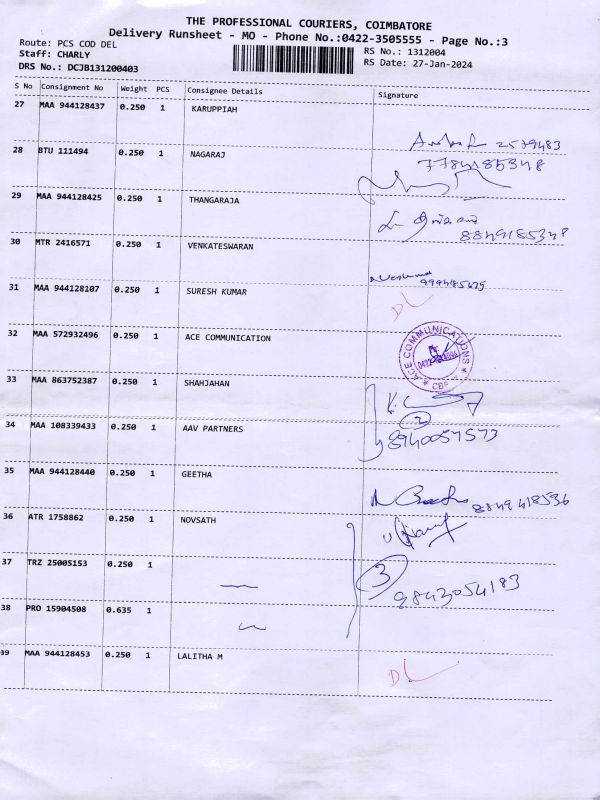 THE PROFESSIONAL COURIERS, COIMBATORE
Delivery Runsheet - MO - Phone No.:0422-3505555 - Page No.:3
Route: PCS COD DEL
RS No.: 1312004
Staff: CHARLY
RS Date: 27-Jan-2024
DRS No.: DCJB131200403
S No Consignment No Weight PCS Consignee Details Signature
27 MAA 944128437 0.250 1 KARUPPIAH
2579483
28 BTU 111494 0.250 1 NAGARAJ
7784185348
29 MAA 944128425 0.250 1 THANGARAJA
8849185348
30 MTR 2416571 0.250 1 VENKATESWARAN
31 MAA 944128107 0.250 1 SURESH KUMAR
DL
32 MAA 572932496 0.250 1 ACE COMMUNICATION
ACE COMMUNICATIONS
CBE
33 MAA 863752387 0.250 1 SHAHJAHAN
K.
2
34 MAA 108339433 0.250 1 AAV PARTNERS
8940057573
35 MAA 944128440 0.250 1 GEETHA
8849418536
36 ATR 1758862 0.250 1 NOVSATH
37 TRZ 25005153 0.250 1
3
9843054183
38 PRO 15904508 0.635 1
39 MAA 944128453 0.250 1 LALITHA M
DL